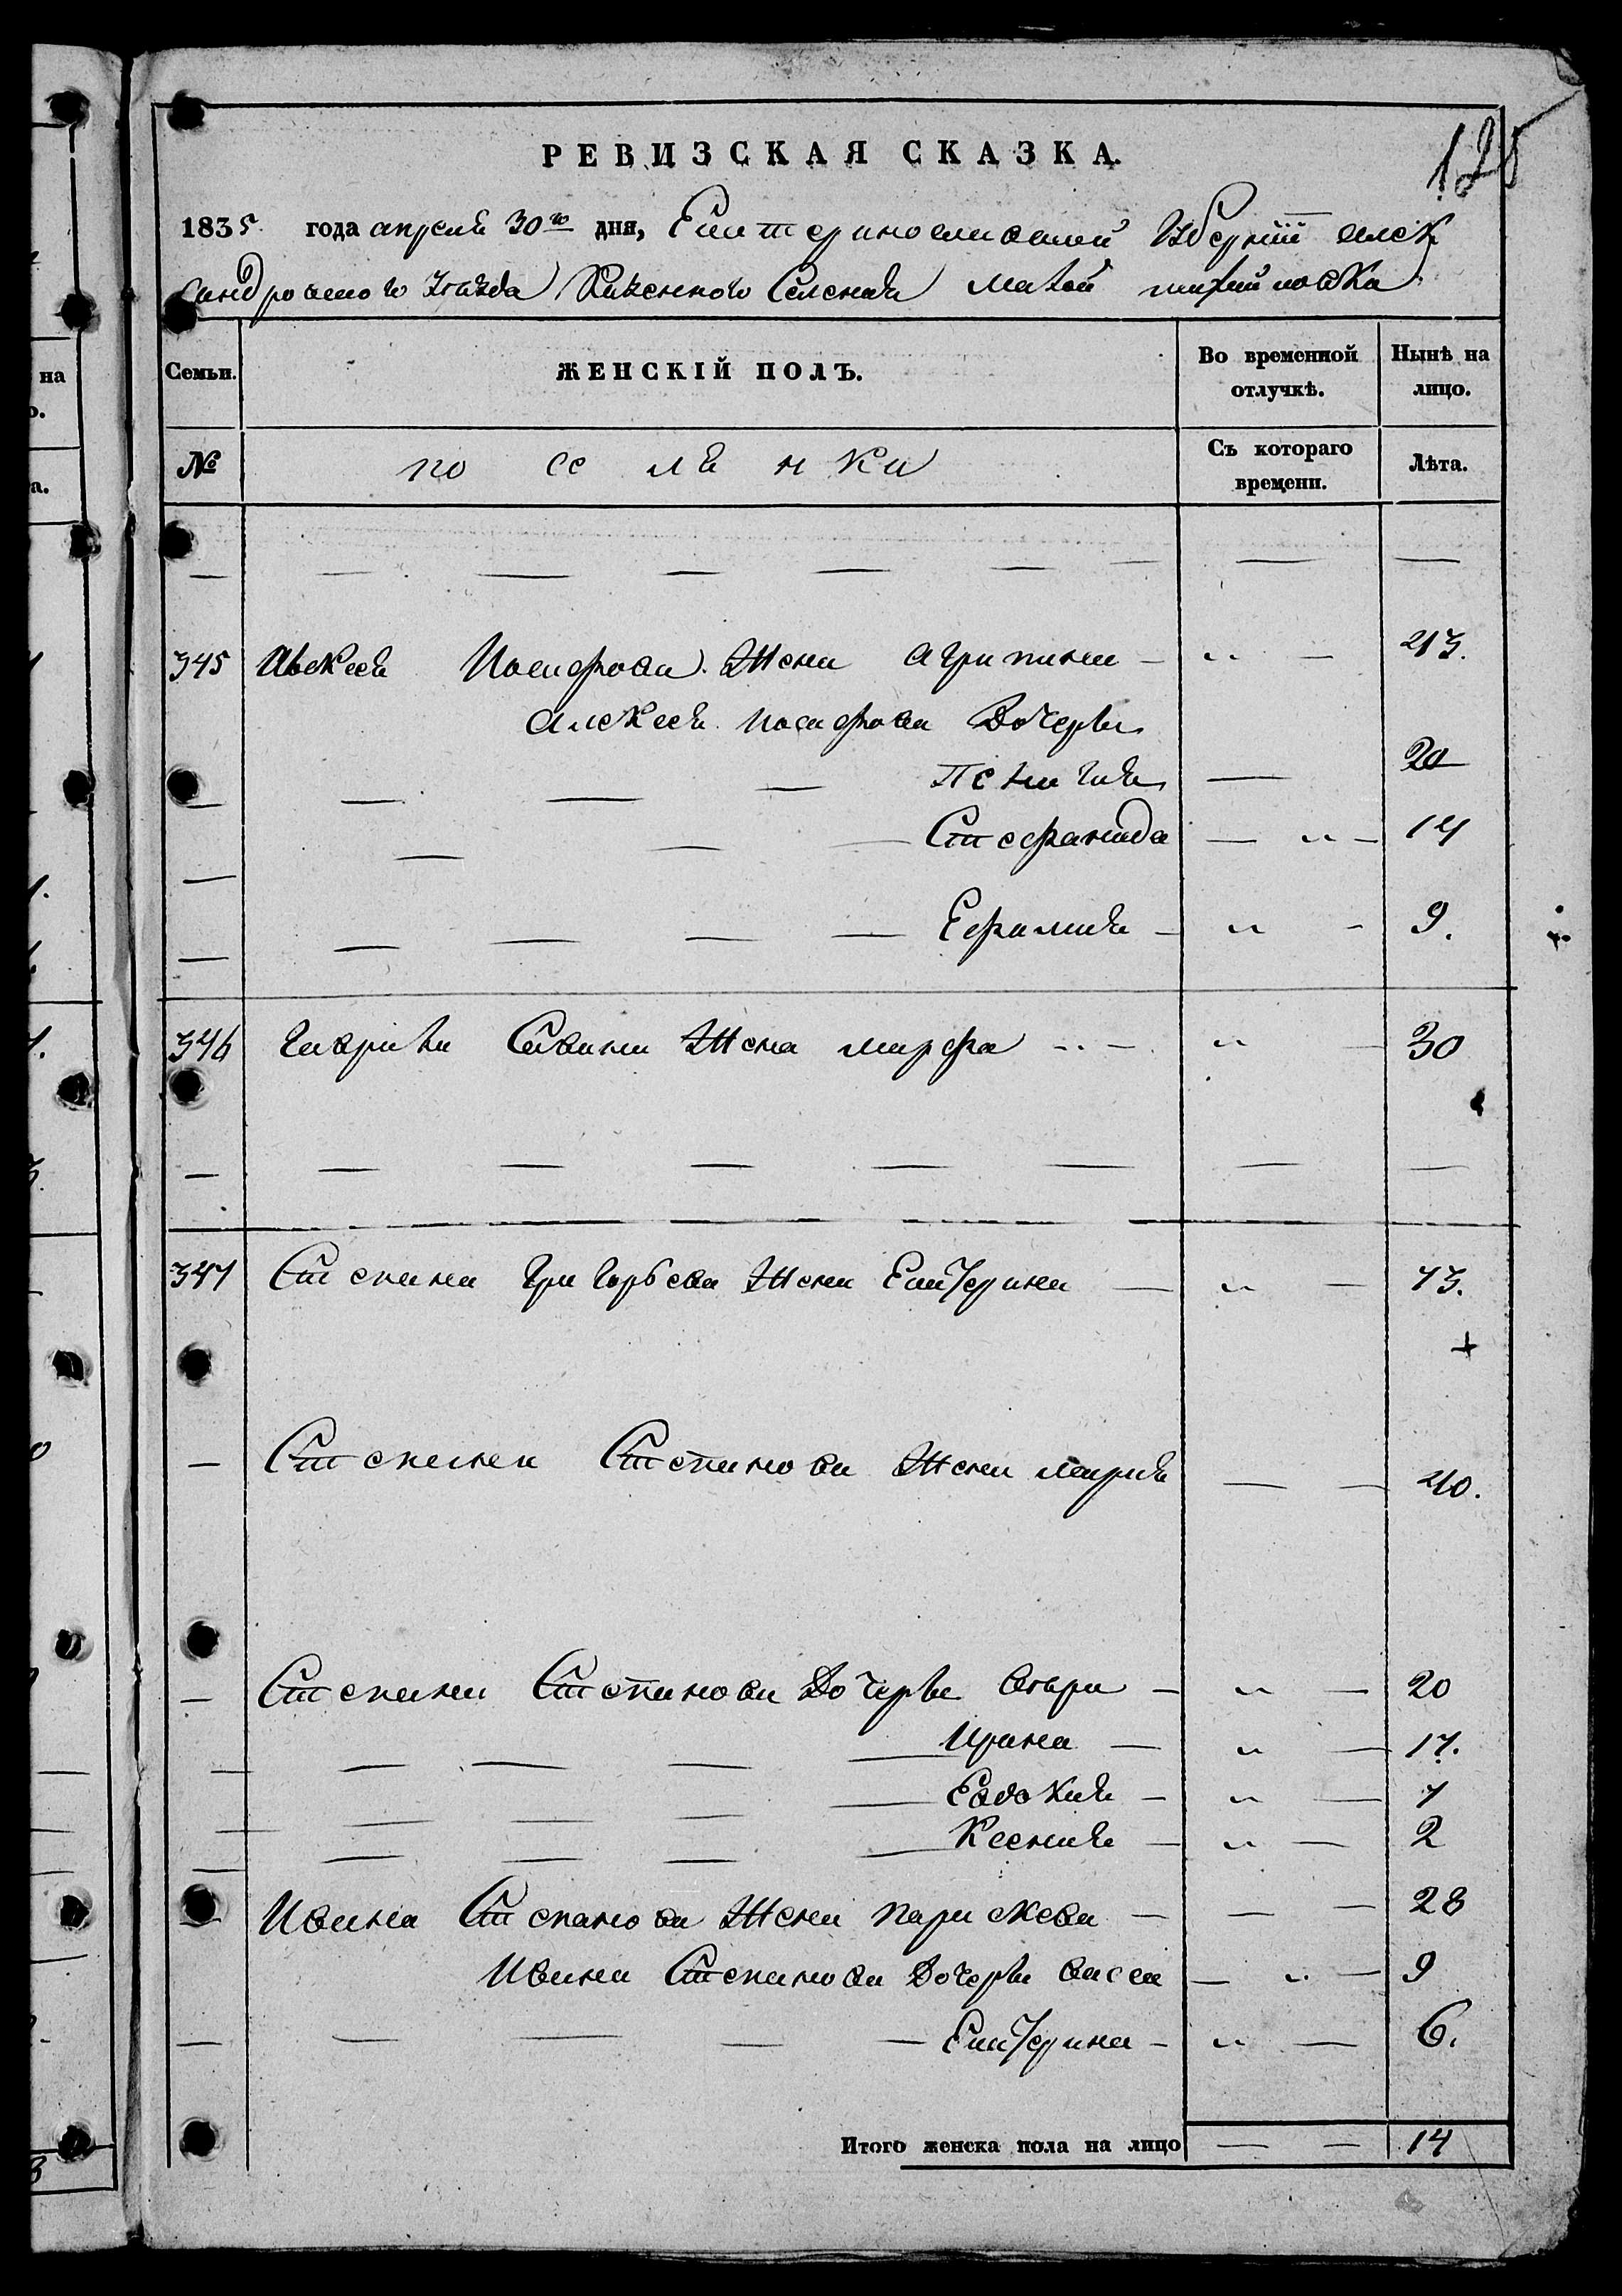 125
РЕВИЗСКАЯ СКАЗКА.
1835 года апреля 30го дня, Екатериносливской Губернїи алек
сандровского уезда Казенного Селения малой михайловки
Семьи. ЖЕНСКІЙ ПОЛЪ. Во временной отлучкѣ. Нынѣ на лицо.
№ по се ля н ки Съ котораго времени. Лѣта.
345 Алексея Иосифова Жена агрипина 43.
алексея иосифова Дочеры
Пелагия 20
Стефанида 14
Ефимия 9.
346 Гаврила Савина Жена марфа 30
347 Степана Григорьева Жена Екатерина 73.
Степана Степанова Жена мария 40.
Степана Степанова Дочеры 20
Ирина 17.
Евдокия 7
Ксения 2
Ивана Степанова Жена параскева 28
Ивана Степанова Дочеры васса 9
Екатерина 6.
Итого женска пола на лицо 14